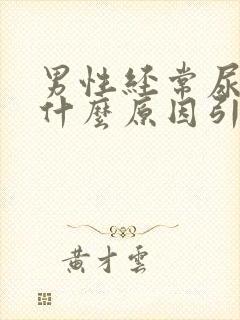 男性経常尿
什麼原因引
黃才雲